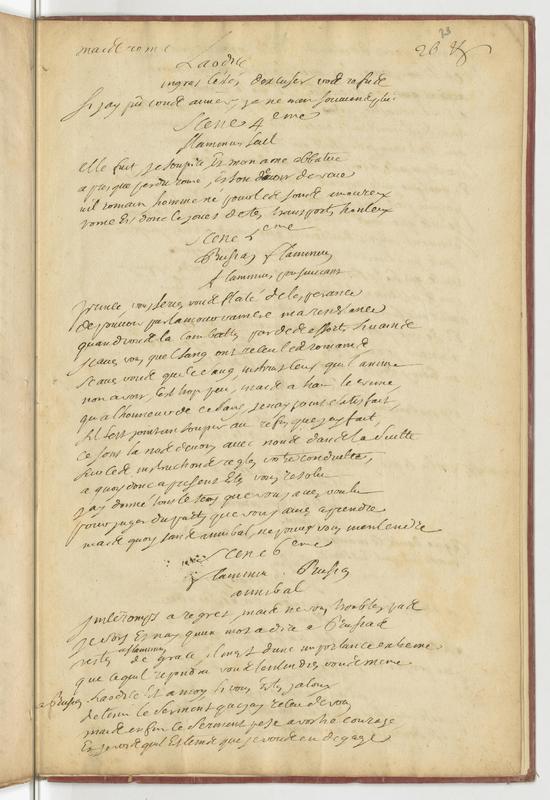 mais rome
23
26
Laodice
ingrat laissés
Si j'ay pû vous aimer, je ne m'en souviens plus
Scene 4eme
flaminius seul
elle fuit, je soupire, et mon ame abbatue
a presque perdu rome, et son devoir de vue
vil romain, homme né pour les soins amoureux
rome est donc le jouet de tes transports honteux
Scene 5eme
Prusias flaminius
flaminius
prince, vous seriés vous flaté de l'esperance
de pouvoir par l'amour vaincre ma resistance
quand vous la combattés par des efforts si vains
scavés vous que le sang
scavés vous que ce sang instruit ceux qu'il anime
non a voir, c'est trop peu, mais a hair le crime
qu'a l'honneur de ce sang je n'ay point satisfait
s'il s'est joint un soupir au refus que j'ay fait
ce sont la nos devoirs, avec nous dans la suitte
sur ces instructions reglés votre conduitte,
a quoy donc a present etes vous resolu
j'ay donné tout le tems que vous avés voulu
pour juger du parti que vous aviés a prendre
mais quoy sans annibal, ne pouvés vous m'entendre
Scene 6eme
flaminius. Prusias
annibal
j'interromps a regret, mais ne vous troublés pas
je dois et n'ay qu'un mot a dire a Prusias
a flaminius
restés de grace, il m'est d'une importance extreme
que ce qu'il repondra vous l'entendiés vous meme
a Prusias Laodice est a moy si vous etes jaloux
de tenir le serment que j'ay receu de vous
mais enfin ce serment pese a votre courage
et je vois qu'il est tems que je vous en degage